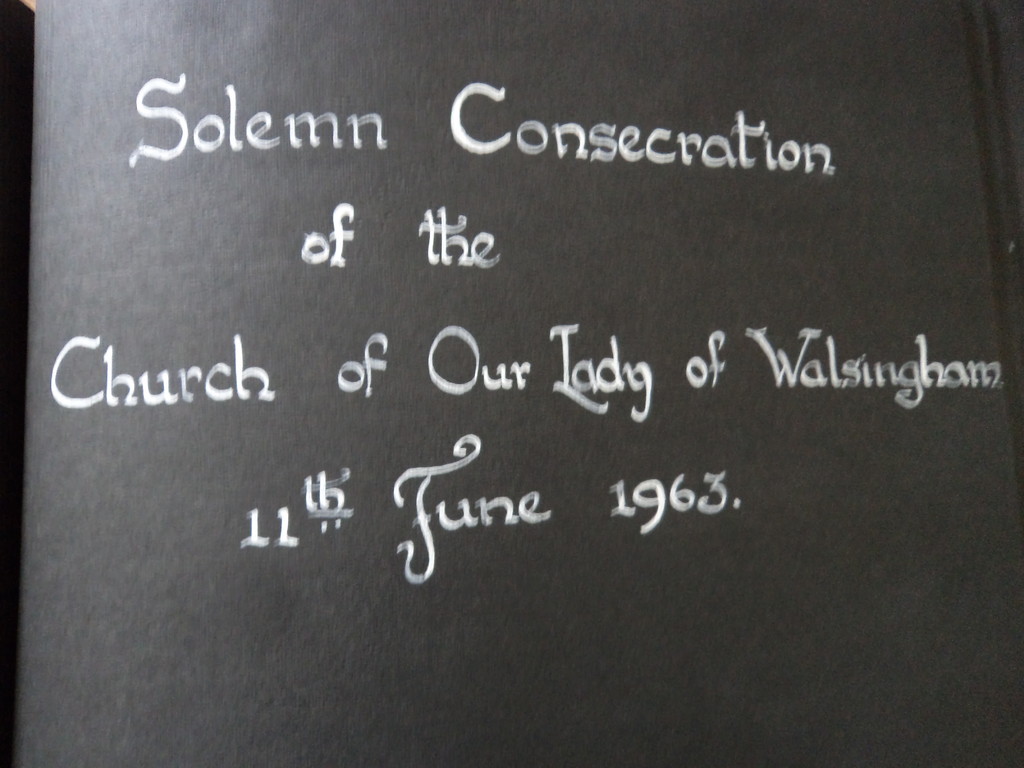 Solemn Consecration
of the
Church of Our Lady of Walsingham
11th June 1963.